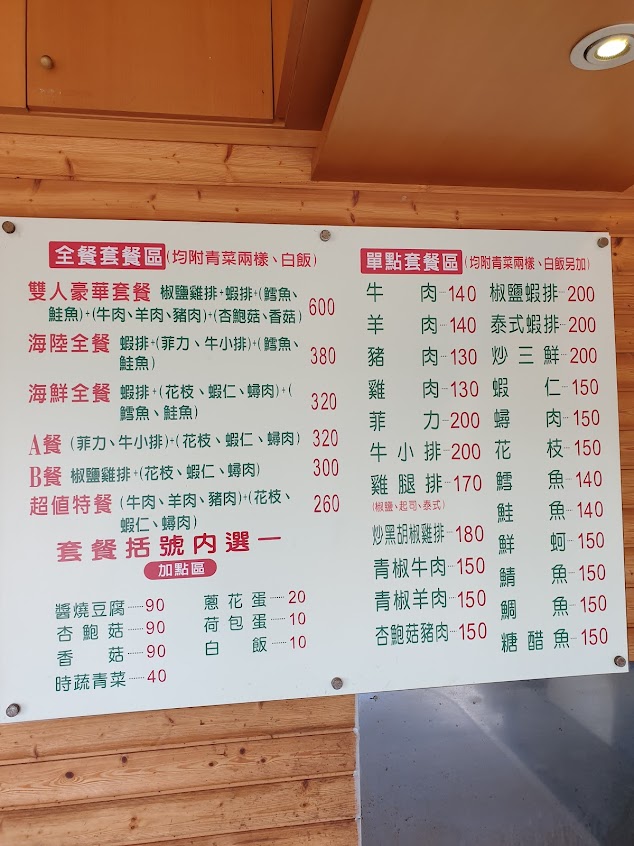 全餐套餐區(均附青菜兩樣、白飯)
雙人豪華套餐 椒鹽雞排+蝦排+(鱈魚、
鮭魚)+(牛肉、羊肉、豬肉)+(杏鮑菇、香菇) 600
海陸全餐 蝦排+(菲力、牛小排)+(鱈魚、
鮭魚) 380
海鮮全餐 蝦排+(花枝、蝦仁、蟳肉)+(
鱈魚、鮭魚) 320
A餐 (菲力、牛小排)+(花枝、蝦仁、蟳肉) 320
B餐 椒鹽雞排+(花枝、蝦仁、蟳肉) 300
超值特餐 (牛肉、羊肉、豬肉)+(花枝、
蝦仁、蟳肉) 260
套餐括號內選一
加點區
醬燒豆腐……90
杏鮑菇……90
香菇……90
時蔬青菜……40
蔥花蛋……20
荷包蛋……10
白飯……10
單點套餐區(均附青菜兩樣、白飯另加)
牛肉…140
羊肉…140
豬肉…130
雞肉…130
菲力…200
牛小排…200
雞腿排…170
(椒鹽、起司、泰式)
炒黑胡椒雞排…180
青椒牛肉…150
青椒羊肉…150
杏鮑菇豬肉…150
椒鹽蝦排…200
泰式蝦排…200
炒三鮮…200
蝦仁…150
蟳肉…150
花枝…150
鱈魚…140
鮭魚…140
鮮蚵…150
鯖魚…150
鯛魚…150
糖醋魚…150